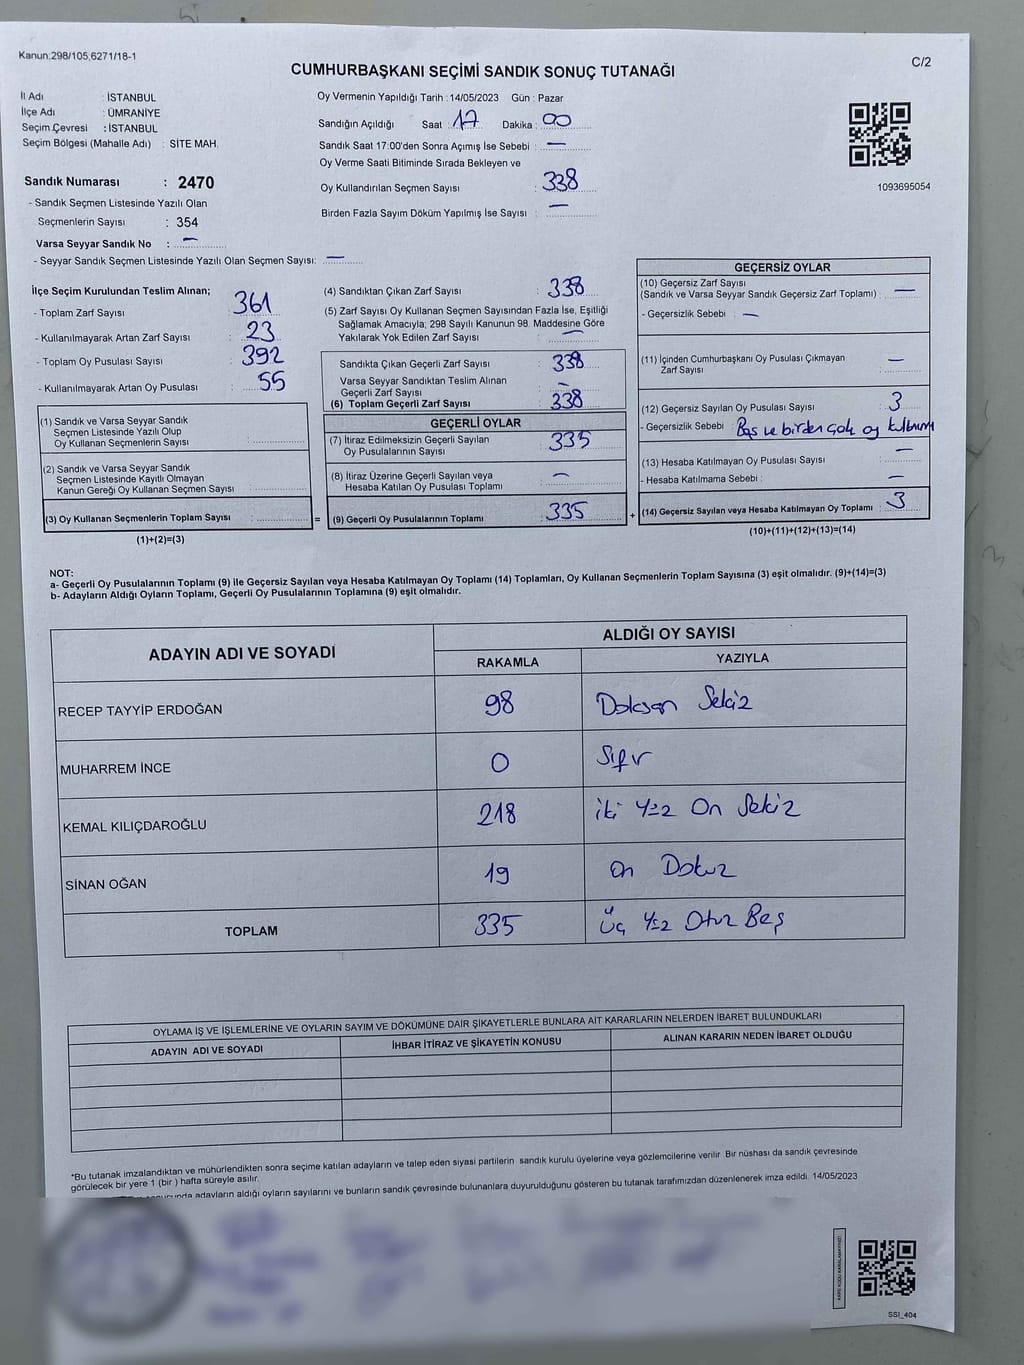 Kanun:298/105,6271/18-1
C/2
CUMHURBAŞKANI SEÇİMİ SANDIK SONUÇ TUTANAĞI
İl Adı : İSTANBUL
İlçe Adı : ÜMRANİYE
Seçim Çevresi : İSTANBUL
Seçim Bölgesi (Mahalle Adı) : SİTE MAH.
Sandık Numarası : 2470
- Sandık Seçmen Listesinde Yazılı Olan
Seçmenlerin Sayısı : 354
Varsa Seyyar Sandık No : —
- Seyyar Sandık Seçmen Listesinde Yazılı Olan Seçmen Sayısı: —
Oy Vermenin Yapıldığı Tarih : 14/05/2023 Gün : Pazar
Sandığın Açıldığı Saat 17 Dakika : 00
Sandık Saat 17:00'den Sonra Açımış İse Sebebi : —
Oy Verme Saati Bitiminde Sırada Bekleyen ve
Oy Kullandırılan Seçmen Sayısı : 338
Birden Fazla Sayım Döküm Yapılmış İse Sayısı : —
1093695054
İlçe Seçim Kurulundan Teslim Alınan;
- Toplam Zarf Sayısı : 361
- Kullanılmayarak Artan Zarf Sayısı : 23
- Toplam Oy Pusulası Sayısı : 392
- Kullanılmayarak Artan Oy Pusulası : 55
(1) Sandık ve Varsa Seyyar Sandık
Seçmen Listesinde Yazılı Olup
Oy Kullanan Seçmenlerin Sayısı :
(2) Sandık ve Varsa Seyyar Sandık
Seçmen Listesinde Kayıtlı Olmayan
Kanun Gereği Oy Kullanan Seçmen Sayısı :
(3) Oy Kullanan Seçmenlerin Toplam Sayısı :
=
(1)+(2)=(3)
(4) Sandıktan Çıkan Zarf Sayısı : 338
(5) Zarf Sayısı Oy Kullanan Seçmen Sayısından Fazla İse, Eşitliği
Sağlamak Amacıyla; 298 Sayılı Kanunun 98. Maddesine Göre
Yakılarak Yok Edilen Zarf Sayısı : —
Sandıkta Çıkan Geçerli Zarf Sayısı : 338
Varsa Seyyar Sandıktan Teslim Alınan
Geçerli Zarf Sayısı : —
(6) Toplam Geçerli Zarf Sayısı : 338
GEÇERLİ OYLAR
(7) İtiraz Edilmeksizin Geçerli Sayılan
Oy Pusulalarının Sayısı : 335
(8) İtiraz Üzerine Geçerli Sayılan veya
Hesaba Katılan Oy Pusulası Toplamı : —
(9) Geçerli Oy Pusulalarının Toplamı : 335
+
GEÇERSİZ OYLAR
(10) Geçersiz Zarf Sayısı
(Sandık ve Varsa Seyyar Sandık Geçersiz Zarf Toplamı) : —
- Geçersizlik Sebebi : —
(11) İçinden Cumhurbaşkanı Oy Pusulası Çıkmayan
Zarf Sayısı : —
(12) Geçersiz Sayılan Oy Pusulası Sayısı : 3
- Geçersizlik Sebebi : Boş ve birden çok oy kullanımı
(13) Hesaba Katılmayan Oy Pusulası Sayısı : —
- Hesaba Katılmama Sebebi : —
(14) Geçersiz Sayılan veya Hesaba Katılmayan Oy Toplamı : 3
(10)+(11)+(12)+(13)=(14)
NOT:
a- Geçerli Oy Pusulalarının Toplamı (9) ile Geçersiz Sayılan veya Hesaba Katılmayan Oy Toplamı (14) Toplamları, Oy Kullanan Seçmenlerin Toplam Sayısına (3) eşit olmalıdır. (9)+(14)=(3)
b- Adayların Aldığı Oyların Toplamı, Geçerli Oy Pusulalarının Toplamına (9) eşit olmalıdır.
ADAYIN ADI VE SOYADI ALDIĞI OY SAYISI
RAKAMLA YAZIYLA
RECEP TAYYİP ERDOĞAN 98 Doksan Sekiz
MUHARREM İNCE 0 Sıfır
KEMAL KILIÇDAROĞLU 218 iki yüz On Sekiz
SİNAN OĞAN 19 On Dokuz
TOPLAM 335 Üç yüz Otuz Beş
OYLAMA İŞ VE İŞLEMLERİNE VE OYLARIN SAYIM VE DÖKÜMÜNE DAİR ŞİKAYETLERLE BUNLARA AİT KARARLARIN NELERDEN İBARET BULUNDUKLARI
ADAYIN ADI VE SOYADI İHBAR İTİRAZ VE ŞİKAYETİN KONUSU ALINAN KARARIN NEDEN İBARET OLDUĞU
*Bu tutanak imzalandıktan ve mühürlendikten sonra seçime katılan adayların ve talep eden siyasi partilerin sandık kurulu üyelerine veya gözlemcilerine verilir Bir nüshası da sandık çevresinde
görülecek bir yere 1 (bir ) hafta süreyle asılır.
adayların aldığı oyların sayılarını ve bunların sandık çevresinde bulunanlara duyurulduğunu gösteren bu tutanak tarafımızdan düzenlenerek imza edildi. 14/05/2023
SSI_404